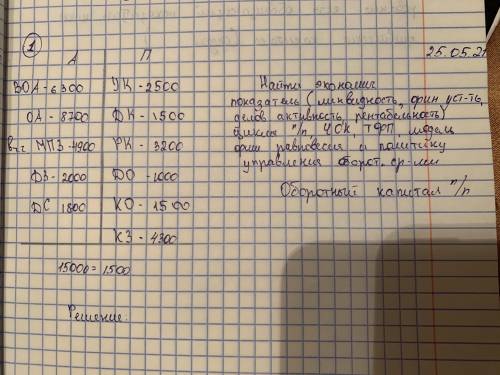 1
А П
25.05.21
ВОА - 6300 УК - 2500
ОА - 8700 ДК - 1500
в т.ч МПЗ - 4900 РК - 3200
ДЗ - 2000 ДО - 1000
ДС 1800 КО - 1500
КЗ - 4300
15000 = 1500
Решение:
Найти экономич
показатель (ликвидность, фин уст-ть,
делов. активность, рентабельность)
циклы п/п, ЧОК, ТФП, модель
фин равновесия и политику
управления оборот. ср-ми
Оборотный капитал п/п